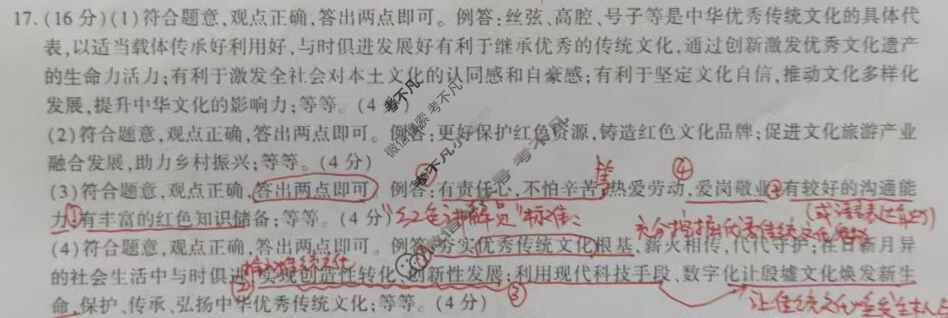 17.(16分)(1)符合题意,观点正确,答出两点即可。例答:丝弦、高腔、号子等是中华优秀传统文化的具体代
表,以适当载体传承好利用好,与时俱进发展好有利于继承优秀的传统文化,通过创新激发优秀文化遗产
的生命力活力;有利于激发全社会对本土文化的认同感和自豪感;有利于坚定文化自信,推动文化多样化
发展,提升中华文化的影响力;等等。(4分)
(2)符合题意,观点正确,答出两点即可。例答:更好保护红色资源、铸造红色文化品牌;促进文化旅游产业
融合发展,助力乡村振兴;等等。(4分)
④
(3)符合题意,观点正确,答出两点即可。例答:有责任心,不怕辛苦,热爱劳动,爱岗敬业;②有较好的沟通能
力;①有丰富的红色知识储备;等等。(4分)“红色讲解员”标准:
(或语言表达能力)
(4)符合题意,观点正确,答出两点即可。例答:夯实优秀传统文化根基,薪火相传,代代守护;在日新月异
的社会生活中与时俱进,②实现创造性转化、创新性发展;利用现代科技手段、数字化让殷墟文化焕发新生
③
命,保护、传承、弘扬中华优秀传统文化;等等。(4分)
让传统文化
微信搜索 考不凡
考不凡小
考不凡